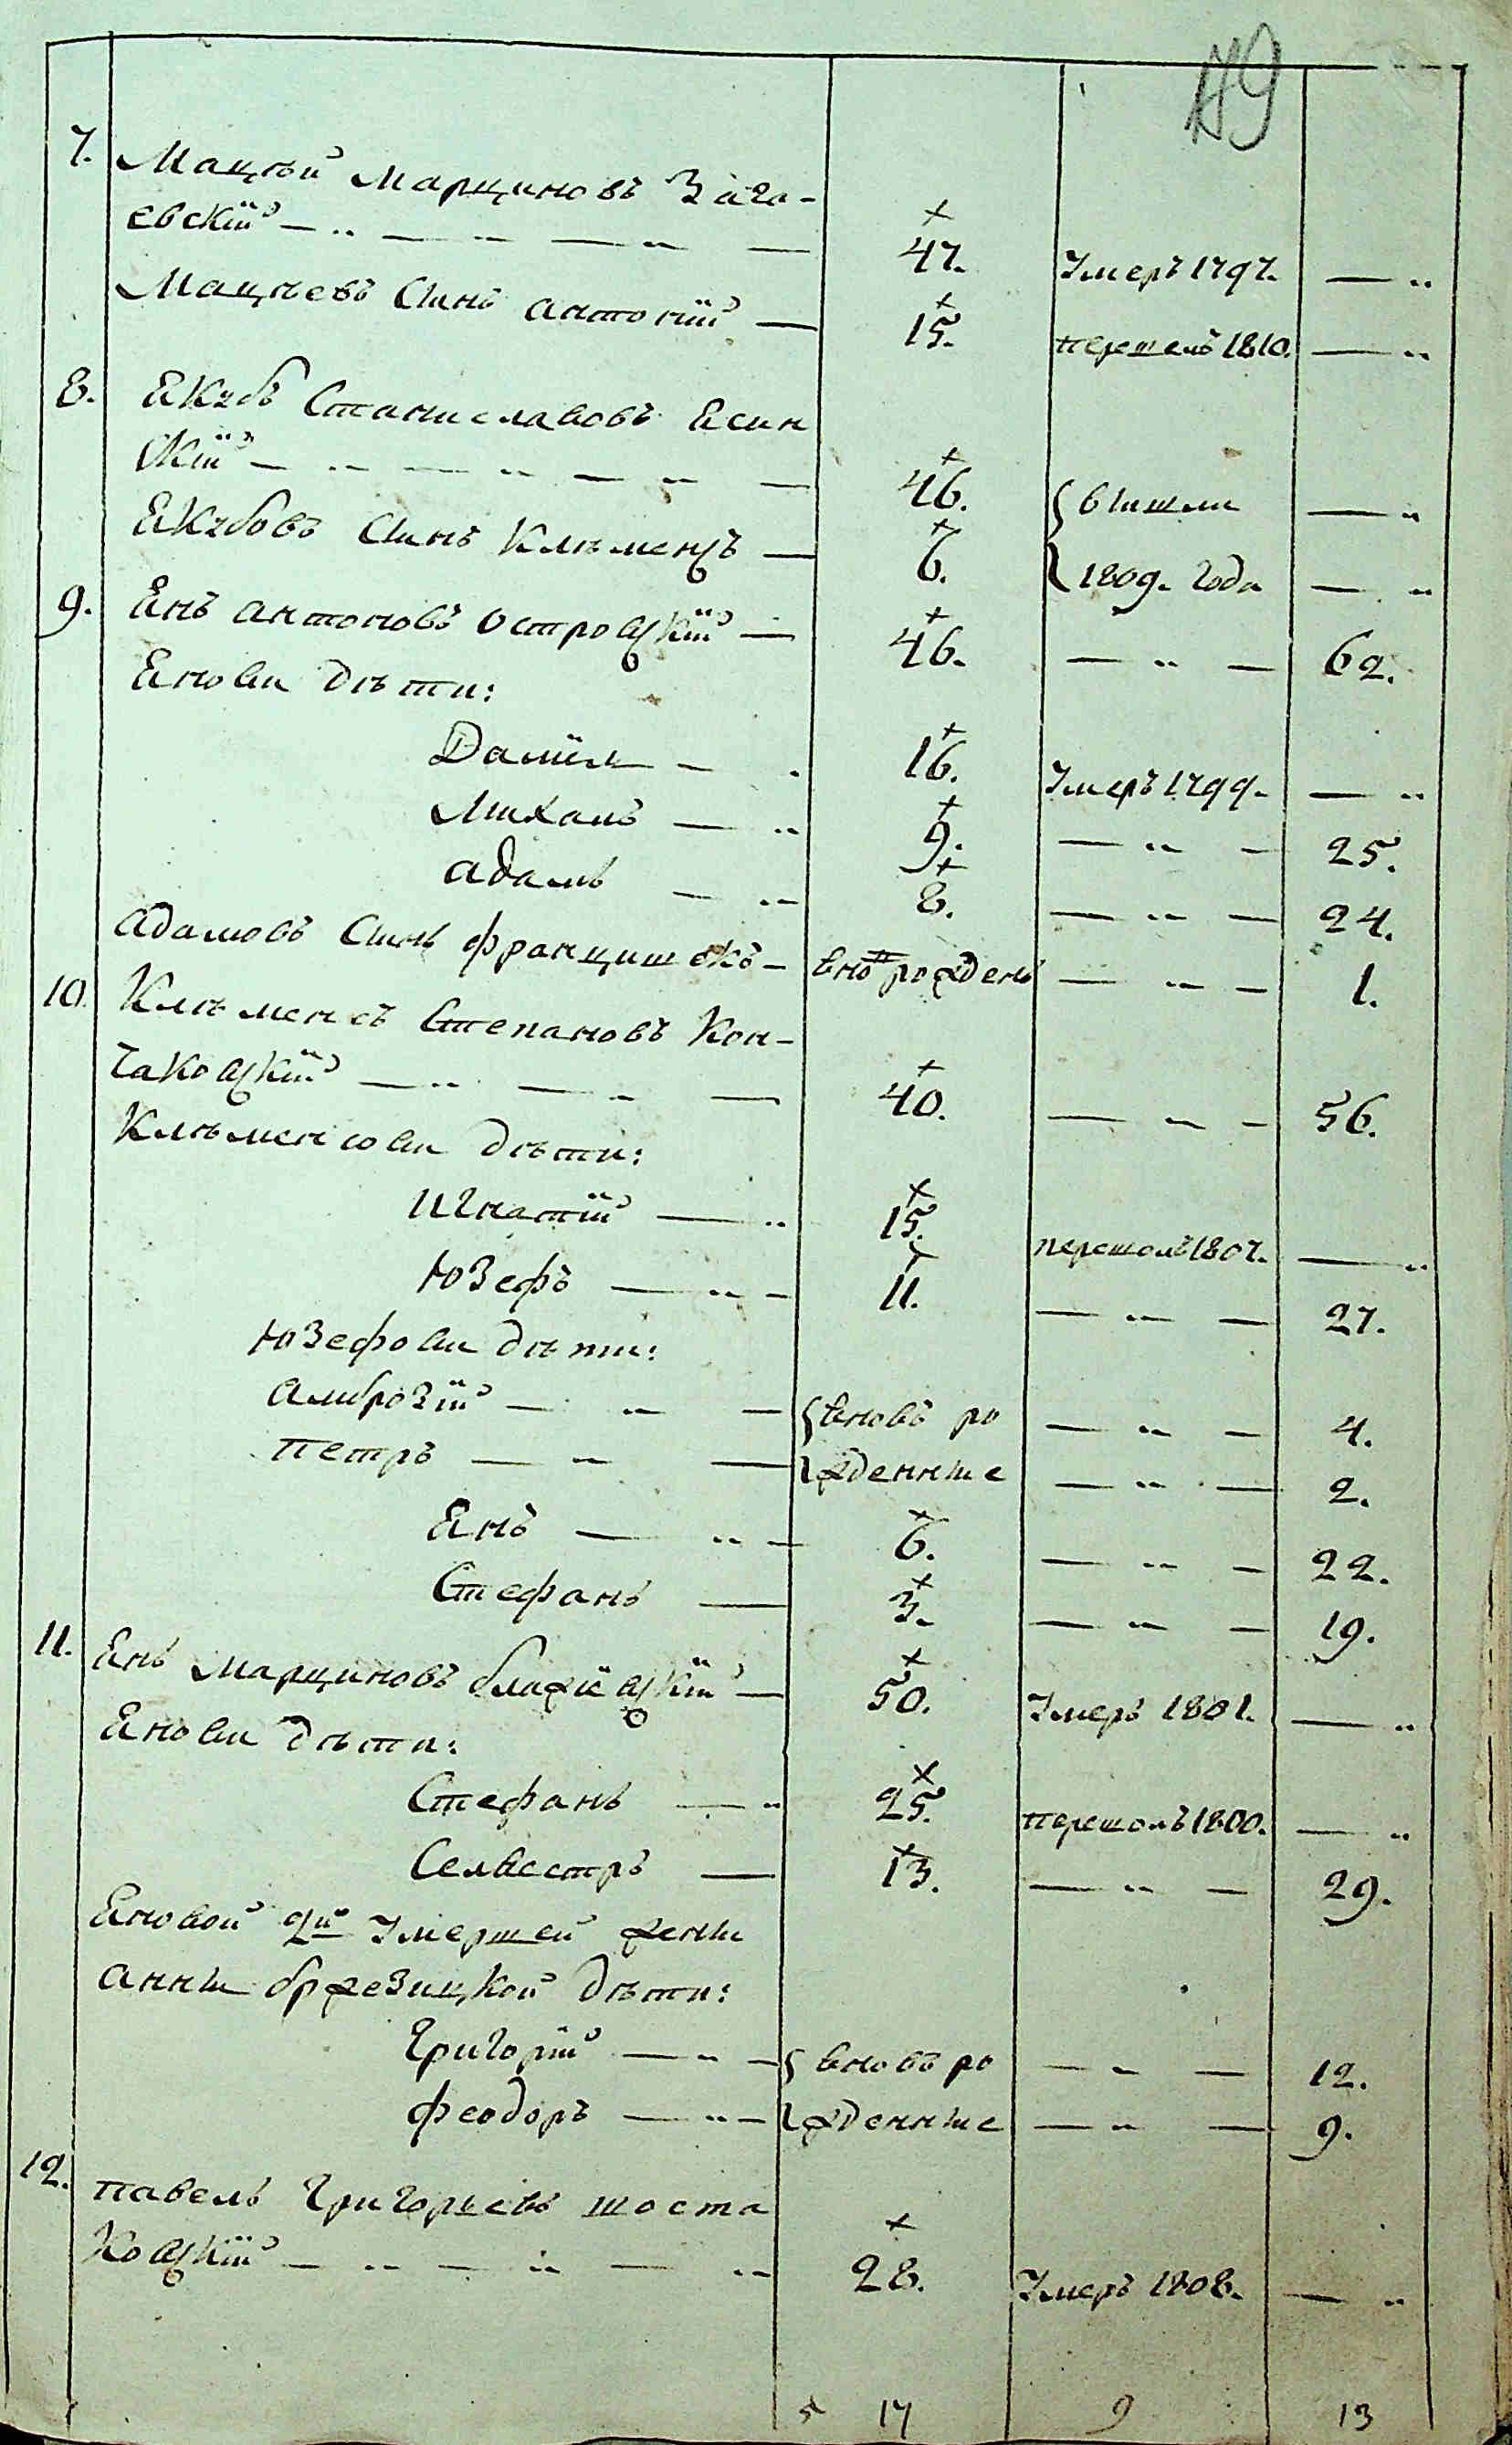 49
7. Мацѣй Марциновъ Заго-
евскій — „ — „ — „ — 47. Умеръ 1797. — „
Мацѣевъ Сынъ антоній — 15. перешелъ 1810. — „
8. Якубъ Станиславовъ Ясин
скій — „ — „ — „ — 46. вышли — „
Якубовъ Сынъ Клѣменсъ — 6. 1809. года — „
9. Янъ антоновъ островскій — 46. — „ — 62.
Яновы дѣти:
Даніил — . 16. Умеръ 1799. — „
Михалъ — „ 9. — „ — 25.
адамъ — „ 8. — „ — 24.
адамовъ Сынъ францишекъ — вно рожденъ — „ — 1.
10. Клѣменсъ Степановъ Кон-
таковскій — „ — „ — 40. — „ — 56.
Клѣменсовы дѣти:
Игнатій — „ 15. перешолъ 1807. — „
Юзефъ — „ — 11. — „ — 27.
Юзефовы дѣти:
амброзій — „ — вновь ро — „ — 4.
петръ — „ — жденные — „ — 2.
Янъ — „ — 6. — „ — 22.
Стефанъ — 3. — „ — 19.
11. Янъ Марциновъ блажіевскій — 50. Умеръ 1801. — „
Яновы дѣти:
Стефанъ — „ 25. перешолъ 1800. — „
Селвестръ — 13. — „ — 29.
Яновой 2й Умершей жены
анны бржезицкой дѣти:
Григорій — „ — вновь ро — „ — 12.
феодоръ — „ — жденные — „ — 9.
12. павелъ Григорьевъ шоста
ковскій — „ — „ — „ 28. Умеръ 1808. — „
17 9 13